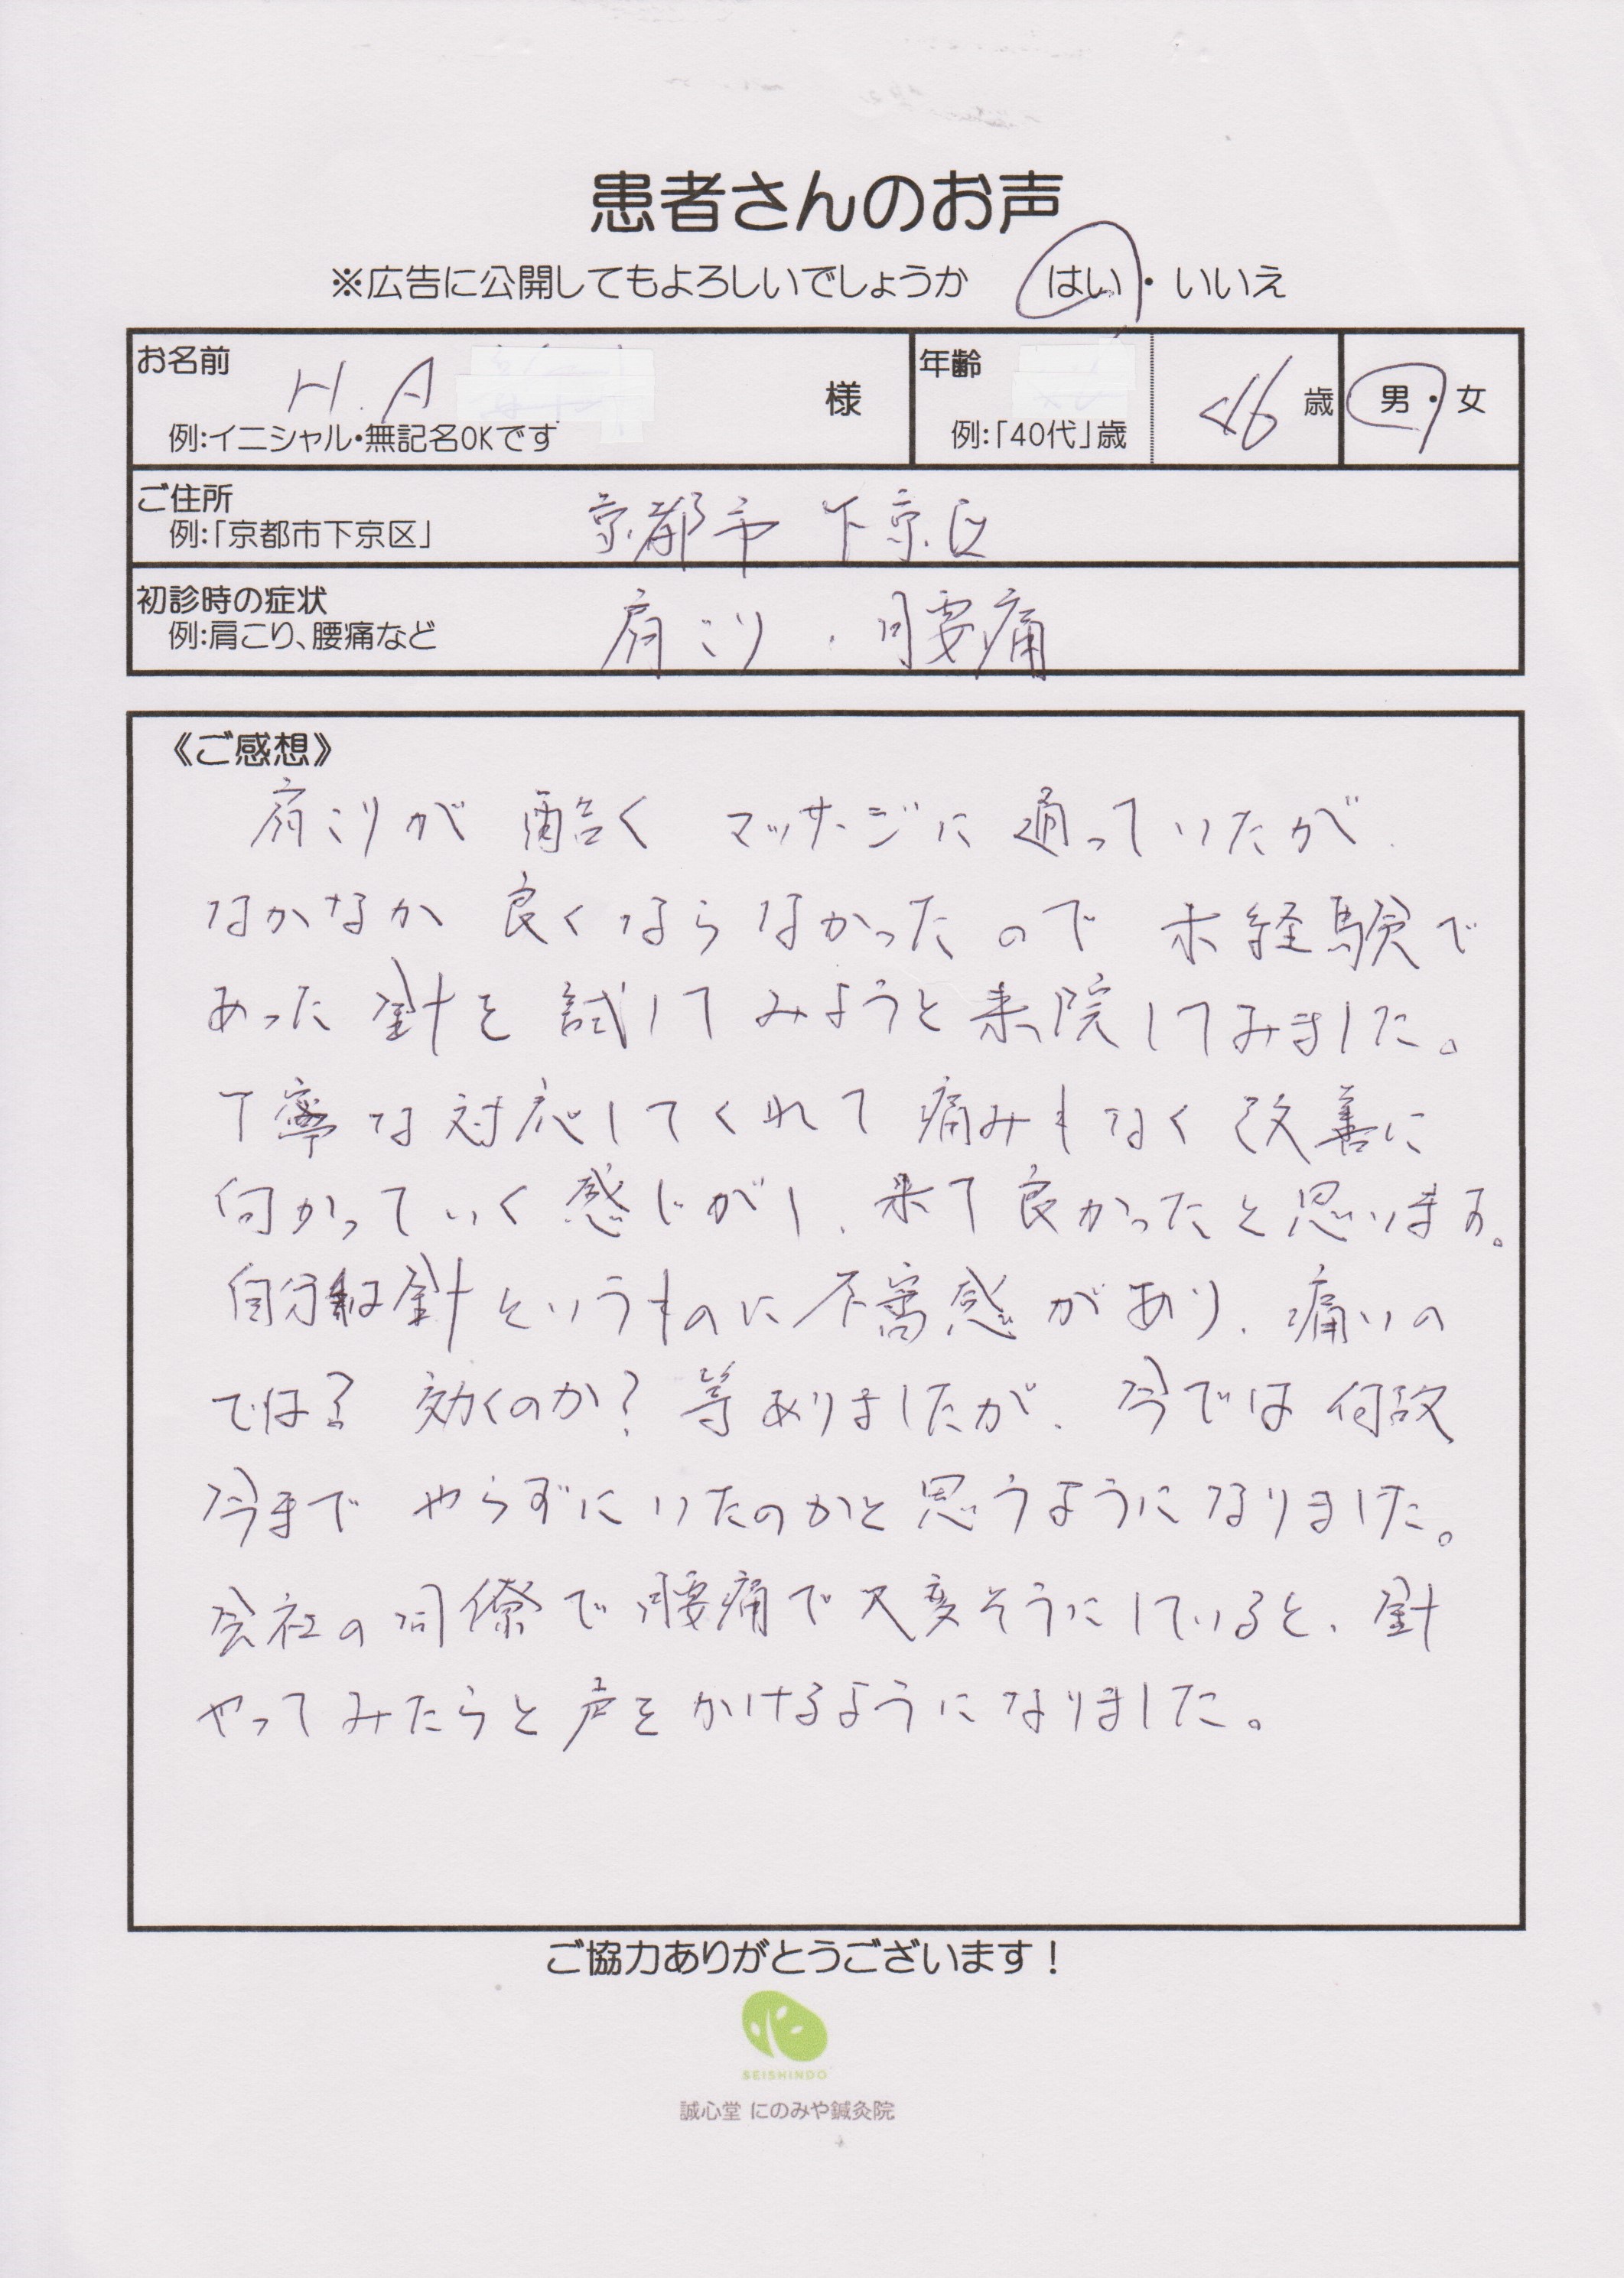 患者さんのお声
※広告に公開してもよろしいでしょうか はい・いいえ
お名前 H.A 様 年齢 46 歳 男・女
例:イニシャル・無記名OKです 例:「40代」歳
ご住所 京都市 下京区
例:「京都市下京区」
初診時の症状 肩こり、腰痛
例:肩こり、腰痛など
《ご感想》
肩こりが 酷く マッサージに 通っていたが、
なかなか 良くならなかったので 未経験で
あった 針を 試してみようと 来院してみました。
丁寧な対応してくれて 痛みもなく 改善に
向かっていく感じがし、来て良かったと思います。
自分は針というものに不審感があり、痛いの
では? 効くのか? 等ありましたが、今では 何故
今まで やらずにいたのかと 思うようになりました。
会社の同僚で腰痛で大変そうにしていると、針
やってみたらと 声を かけるようになりました。
ご協力ありがとうございます!
SEISHINDO
誠心堂 にのみや鍼灸院